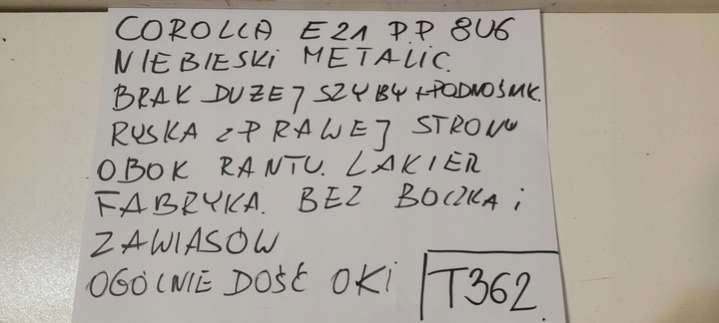 COROLLA E21 P.P 8U6
NIEBIESKI METALIC.
BRAK DUŻEJ SZYBY + PODNOŚNIK.
RYSKA Z PRAWEJ STRONY
OBOK RANTU. LAKIER
FABRYKA. BEZ BOCZKA i
ZAWIASÓW
OGÓLNIE DOŚĆ OKI T362